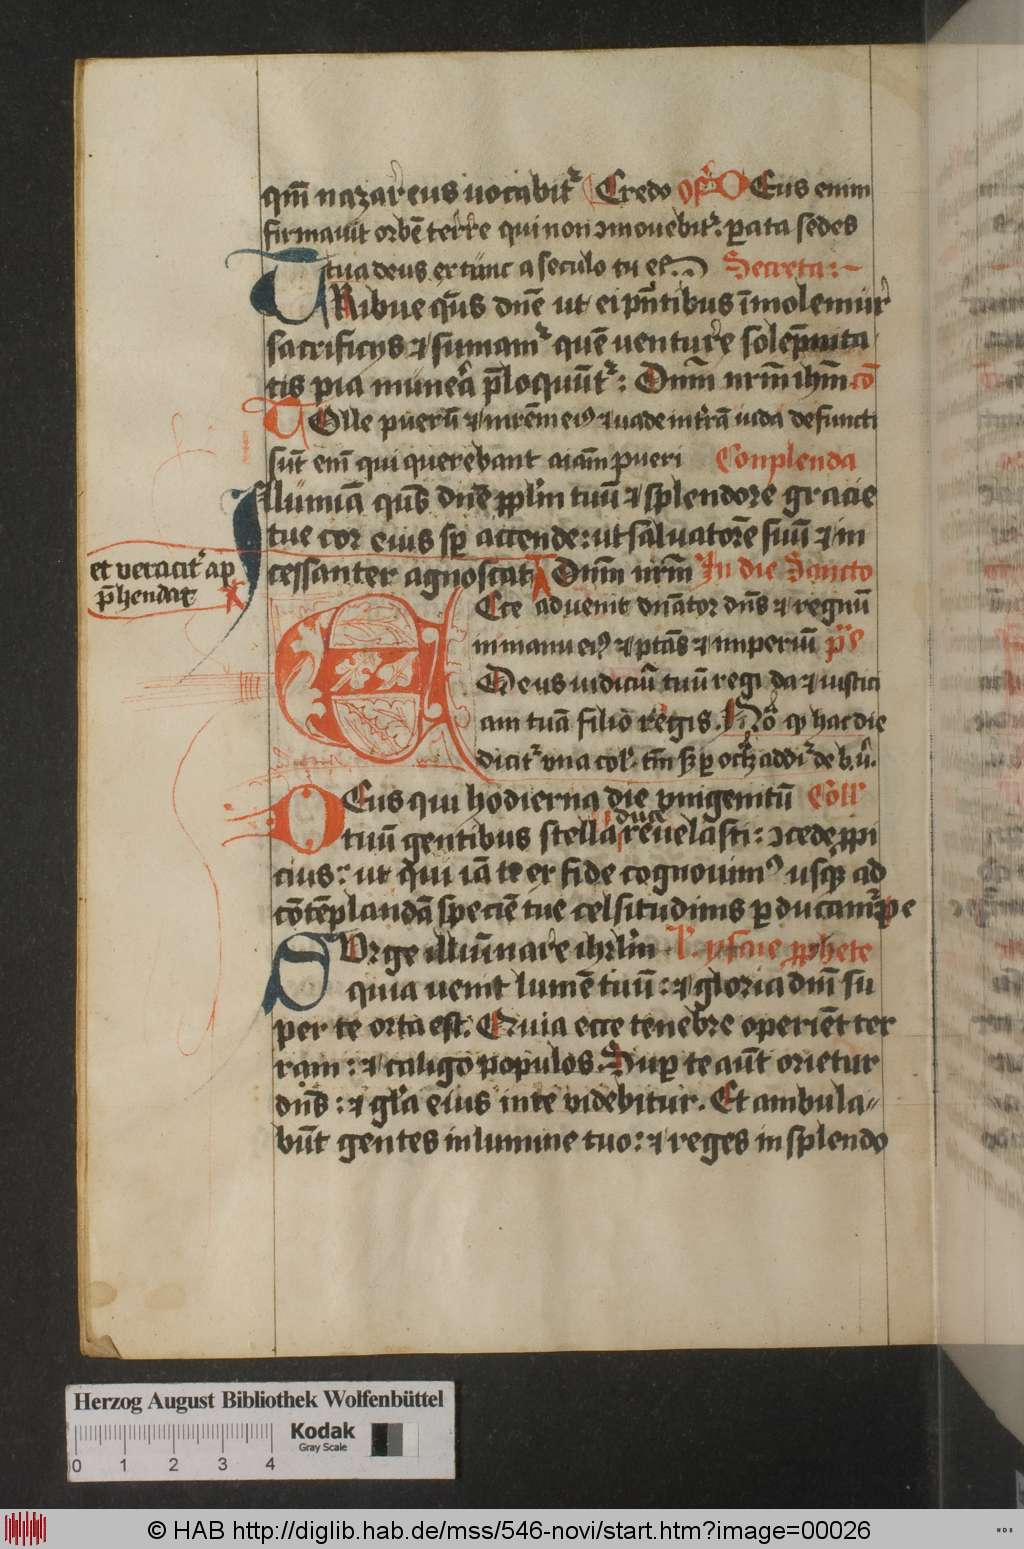 qm̄ nazareus uocabitᷣ Credo Off DEus enim
firmauit orbē terre qui non ɔmouebitᷣ: ꝑata sedes
tua deus ex tūnc a seculo tu es. Secreta:
TRibue qs̄ dnē ut ei pn̄tibus īmolemur
sacrificijs ⁊ sumamᷣ quē uenture solēpnita
tis pia munera p̄loquūtᷣ: Dnm̄ nrm̄ ihm̄ cō
TOlle puerū ⁊ mrēm eiꝰ ⁊ uade in tr̄am iuda defuncti
sūt eni qui querebant aīam pueri Conplenda
Illumīa qs̄ dnē ppl̄m tuū ⁊ splendore gracie
tue cor eius sp̄ accende: ut saluatorē suū ⁊ in
cessanter agnoscat Dnm̄ nrm̄ In die Sancto
et veracitᷣ ap
p̄hendat
ECce aduenit dn̄ator dn̄s ⁊ regnū
in manu eiꝰ ⁊ ptās ⁊ imperiū p̄s
Deus iudiciū tuū regi da ⁊ iustici
am tuā filio regis. Nō ꝙ hac die
dicitᷣ una col̄. tm̄ ꝑ addiᷣ de b. ū.
DEus qui hodierna die vnigenitū Coll̄
tuū gentibus stella duce reuelasti: ɔcede ppi
cius: ut qui iā te ex fide cognouimꝰ usqꝫ ad
cōtēplandā speciē tue celsitudinis ꝑducamᷣ pe
SUrge illumīnare ihrl̄m L. ysaie ꝓphete
quia uenit lumē tuū: ⁊ gloria dnī su
per te orta est. Quia ecce tenebre operiēt ter
ram: ⁊ caligo populos. Suꝑ te aūt orietur
dn̄s: ⁊ gl̄a eius in te videbitur. Et ambula
būt gentes in lumine tuo: ⁊ reges in splendo
Herzog August Bibliothek Wolfenbüttel
Kodak
Gray Scale
0 1 2 3 4
© HAB http://diglib.hab.de/mss/546-novi/start.htm?image=00026